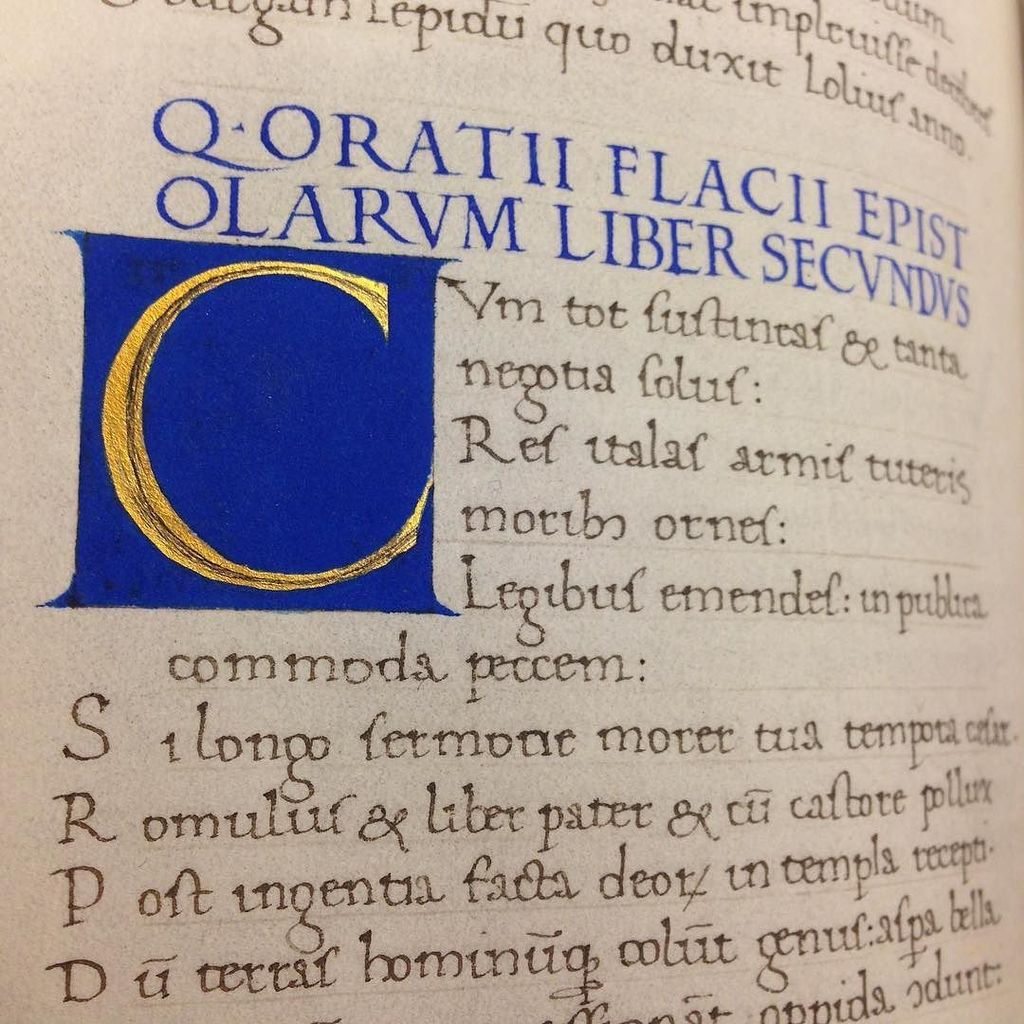 implcuisse decembres
Lepidū quo duxit Loliuſ anno.
Q·ORATII FLACII EPIST
OLARVM LIBER SECVNDVS
CVm tot ſuſtineaſ & tanta
negotia ſoluſ:
Reſ italaſ armiſ tuteris
moribꝫ orneſ:
Legibuſ emendeſ: in publica
commoda peccem:
Si longo ſermone morer tua tempora ceſar.
Romuluſ & liber pater & cū caſtore pollux
Poſt ingentia facta deoꝝ in templa recepti.
Dū terraſ hominūqꝫ colūt genuſ: aſpa bella
oppida ↄdunt: